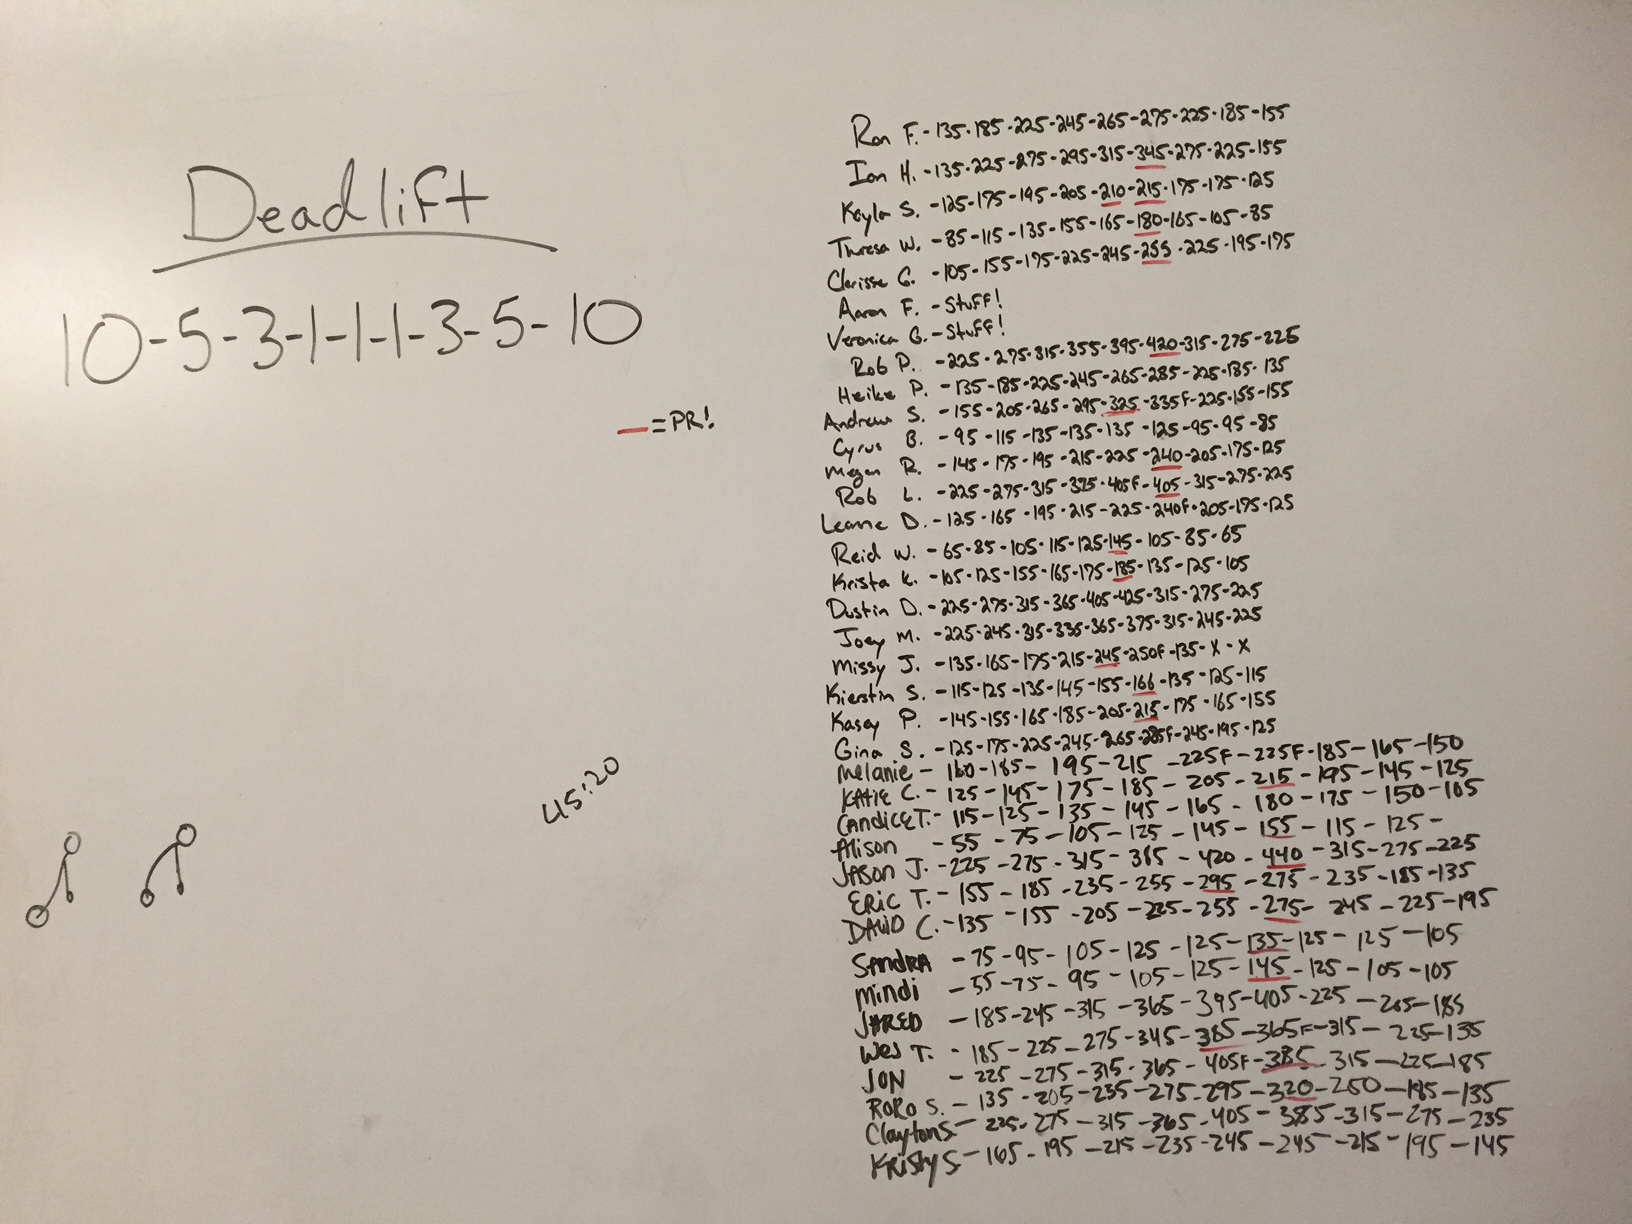 Deadlift
10-5-3-1-1-1-3-5-10
— = PR!
45:20
Ron F. - 135-185-225-245-265-275-225-185-155
Ian H. - 135-225-275-295-315-345-275-225-155
Kayla S. - 125-175-195-205-210-215-175-175-125
Theresa W. - 85-115-135-155-165-180-165-105-85
Clarisse G. - 105-155-175-225-245-255-225-195-175
Aaron F. - Stuff!
Veronica G. - Stuff!
Rob P. - 225-275-315-355-395-420-315-275-225
Heike P. - 135-185-225-245-265-285-225-185-135
Andrew S. - 155-205-265-295-325-335F-225-155-155
Cyrus B. - 95-115-135-135-135-125-95-95-85
Megan R. - 145-175-195-215-225-240-205-175-125
Rob L. - 225-275-315-375-405F-405-315-275-225
Leanne D. - 125-165-195-215-225-240F-205-175-125
Reid W. - 65-85-105-115-125-145-105-85-65
Krista K. - 105-125-155-165-175-185-135-125-105
Dustin D. - 225-275-315-365-405-425-315-275-225
Joey M. - 225-245-315-335-365-375-315-245-225
Missy J. - 135-165-175-215-245-250F-135-X-X
Kierstin S. - 115-125-135-145-155-166-135-125-115
Kasey P. - 145-155-165-185-205-215-175-165-155
Gina S. - 125-175-225-245-265-285F-245-195-125
Melanie - 160-185-195-215-225F-225F-185-165-150
Katie C. - 125-145-175-185-205-215-195-145-125
Candice T. - 115-125-135-145-165-180-175-150-105
Alison - 55-75-105-125-145-155-115-125-
Jason J. - 225-275-315-385-420-440-315-275-225
Eric T. - 155-185-235-255-295-275-235-185-135
David C. - 135-155-205-225-255-275-245-225-195
Sandra - 75-95-105-125-125-135-125-125-105
Mindi - 55-75-95-105-125-145-125-105-105
Jared - 185-245-315-365-395-405-225-205-185
Wes T. - 185-225-275-345-385-365F-315-225-135
Jon - 225-275-315-365-405F-385-315-225-185
RoRo S. - 135-205-235-275-295-320-250-185-135
Clayton S - 225-275-315-365-405-385-315-275-235
Kristy S - 165-195-215-235-245-245-215-195-145